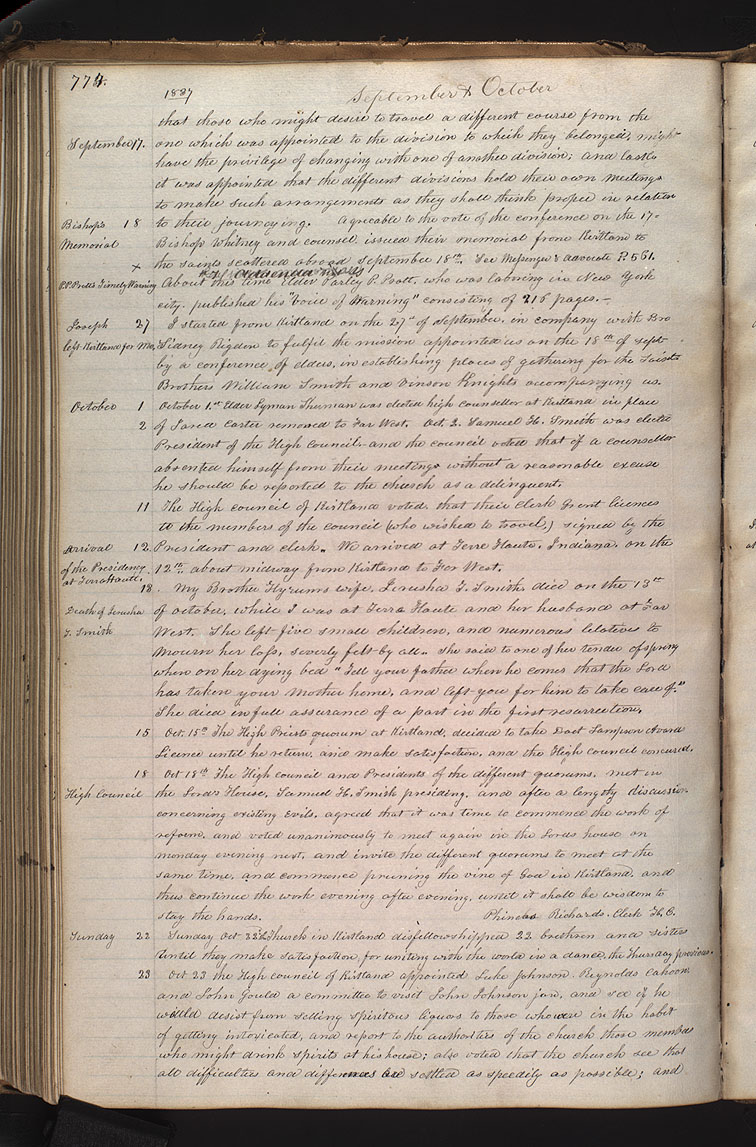 774.
1837 September & October
that those who might desire to travel a different course from the
September 17. one which was appointed to the division to which they belonged, might
have the privilege of changing with one of another division; and lastly
it was appointed that the different divisions hold their own meetings
to make such arrangements as they shall think proper in relation
Bishops 18 to their journeying. Agreeable to the vote of the conference on the 17-
Memorial Bishop Whitney and counsel, issued their memorial from Kirtland to
× the saints scattered abroad September 18th. See Messenger & advocate P. 561.
P.P. Pratts Timely Warning About this time Elder Parley P. Pratt, who was laboring in New York
city. published his "Voice of Warning" consisting of 216 pages.-
Joseph 27 I started from Kirtland on the 27th of September, in company with Bro
left Kirtland for Mo. Sidney Rigdon to fulfil the mission appointed us on the 18th of Sept
by a conference of elders, in establishing places of gathering for the Saints
Brothers William Smith and Vinson Knights accompanying us.
October 1 October 1.st Elder Lyman Sherman was elected high counsellor at Kirtland in place
2 of Jared Carter removed to Far West. Oct. 2. Samuel H. Smith was elected
President of the High Council- and the council voted that if a counsellor
absented himself from their meetings without a reasonable excuse
he should be reported to the church as a delinquent.
11 The High council of Kirtland voted, that their clerk grant licences
to the members of the council (who wished to travel,) signed by the
Arrival 12. President and clerk. We arrived at Terre Haute, Indiana, on the
of the Presidency 12th. about midway from Kirtland to Far West.
at Terra Hautt.
13. My Brother Hyrum's wife, Jerusha T. Smith, died on the 13th
Death of Jerusha of october, while I was at Terra Haute and her husband at Far
T. Smith West. She left five small children, and numerous relatives to
mourn her loss, severly felt by all. She said to one of her tender ofspring
when on her dying bed "Tell your father when he comes that the Lord
has taken your Mother home, and left you for him to take care of."
She died in full assurance of a part in the first resurrection.
15 Oct. 15th The High Priests quorum at Kirtland, decided to take Doct Sampson Avards
Licence until he return, and make satisfaction, and the High council concured.
18 Oct 18th The High council and Presidents of the different quorums, met in
High Council the Lord's House, Samuel H. Smith presiding, and after a lengthy discussion
concerning existing Evils, agreed that it was time to commence the work of
reform, and voted unanimously to meet again in the Lords house on
monday evening next, and invite the different quorums to meet at the
same time, and commence pruning the vine of God in Kirtland, and
thus continue the work evening after evening, until it shall be wisdom to
stay the hands. Phineas Richards. Clerk H. C.
Sunday 22 Sunday Oct 22d Church in Kirtland disfellowshipped 22 brethren and sisters
until they make satisfaction, for uniting with the world in a dance, the Thursday previous.
23 Oct 23 the High council of Kirtland appointed Luke Johnson. Reynolds Cahoon
and John Gould a committee to visit John Johnson jun, and see if he
would desist from selling spiritous liquors to those who are in the habit
of getting intoxicated, and report to the authorities of the church those members
who might drink spirits at his house; also voted that the church see that
all difficulties and differences are settled as speedily as possible; and